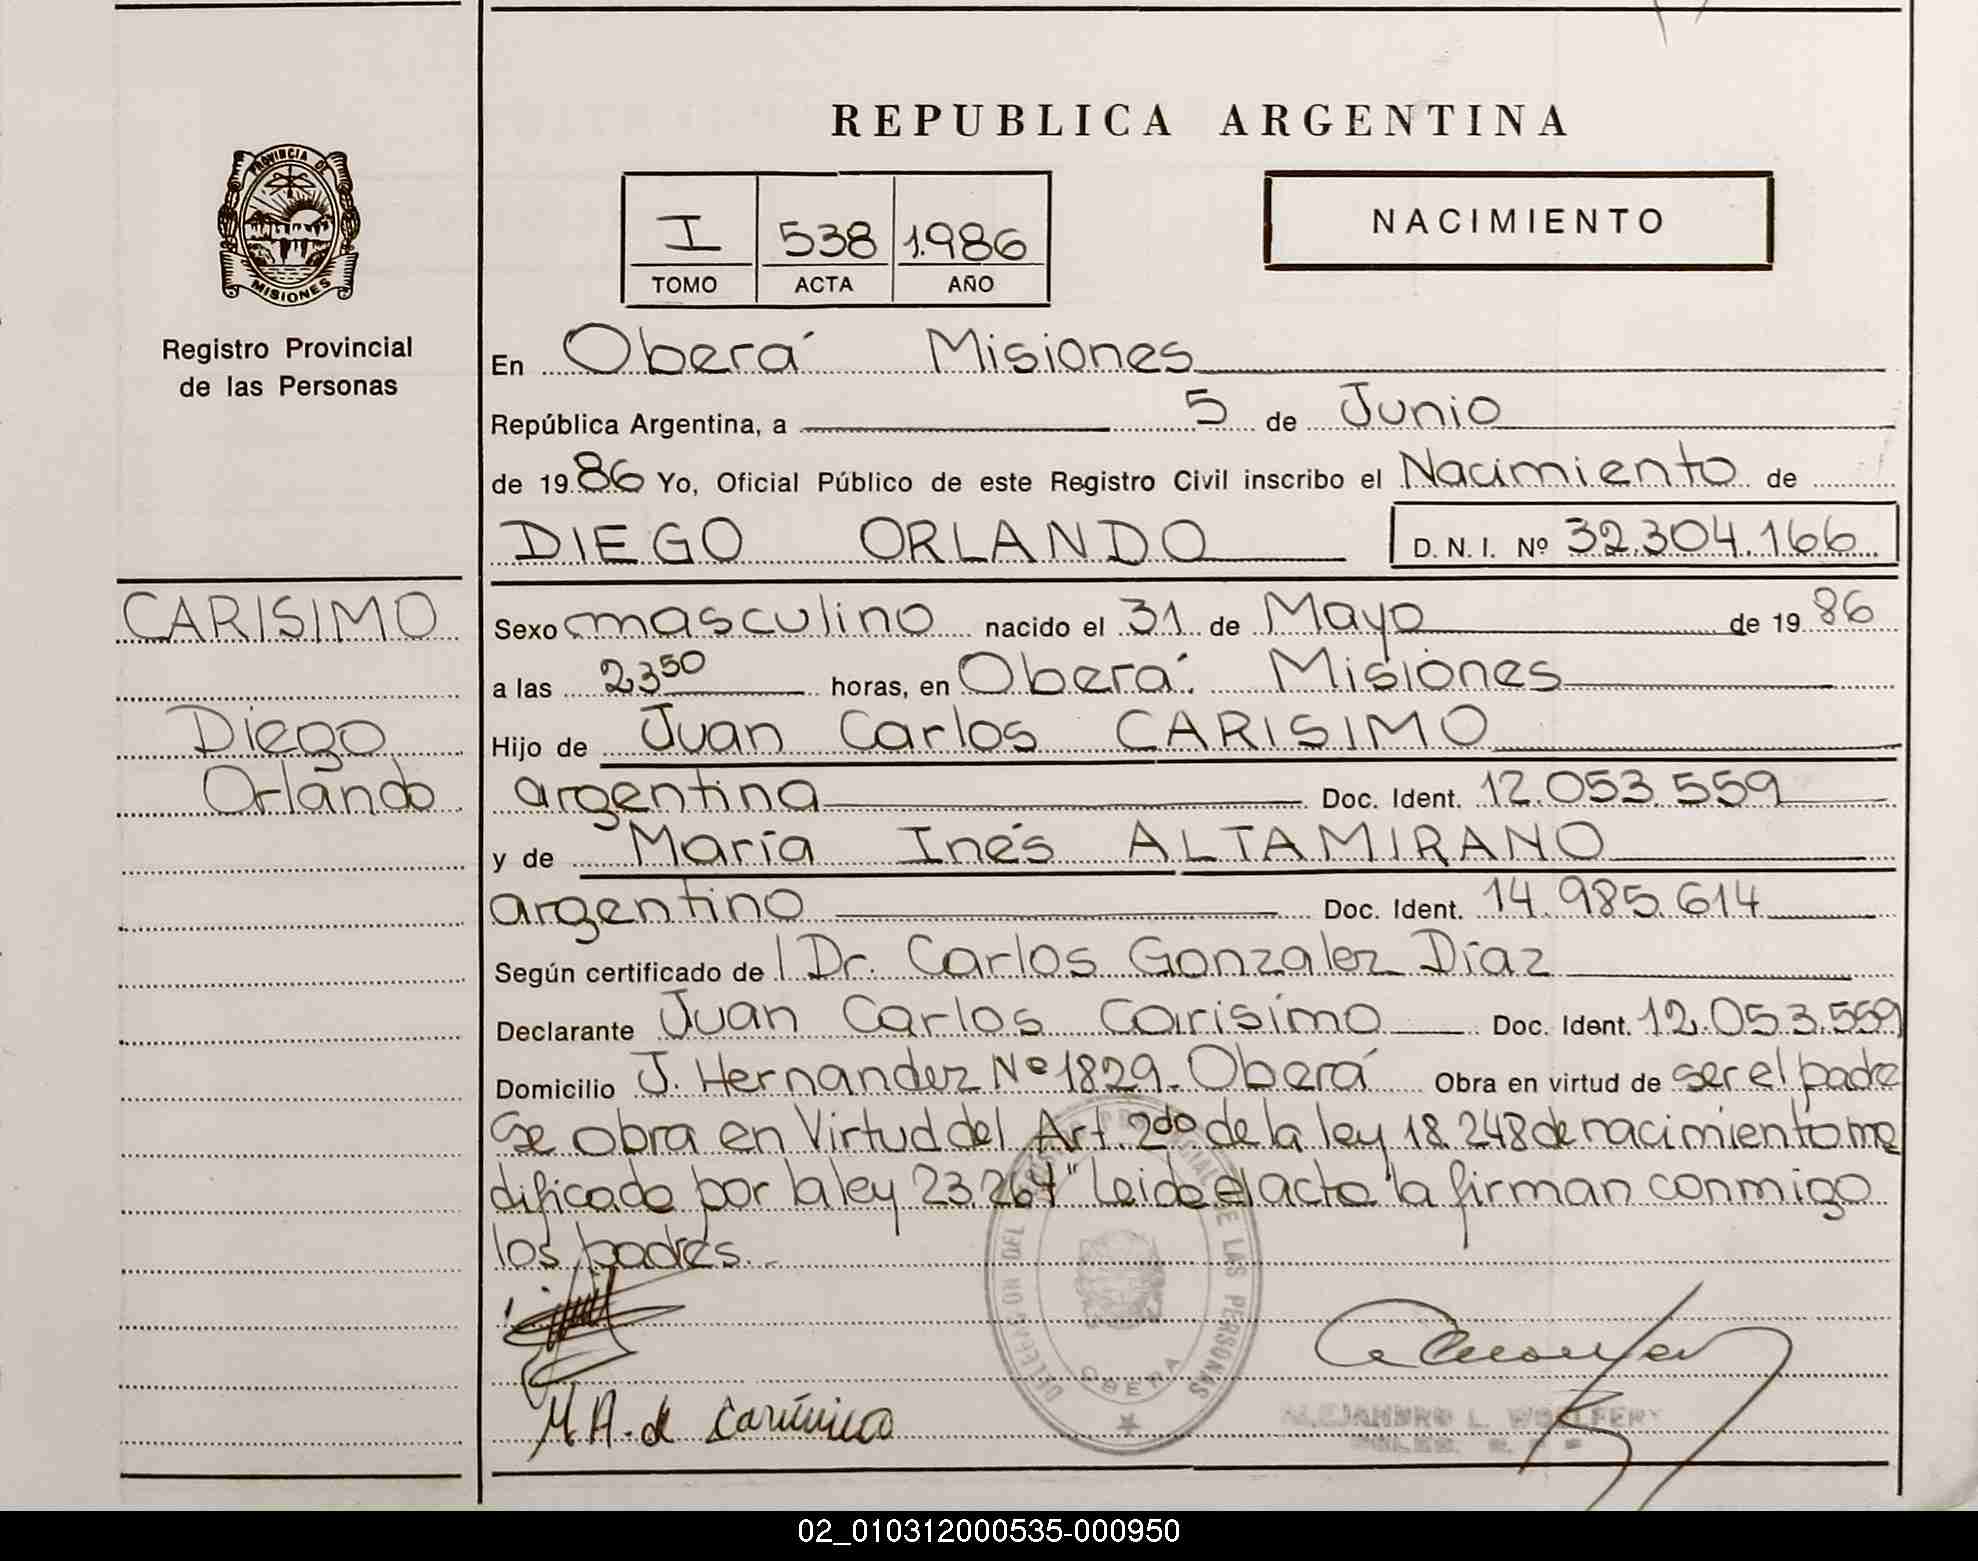 REPUBLICA ARGENTINA
PROVINCIA DE
MISIONES
Registro Provincial
de las Personas
I 538 1.986
TOMO ACTA AÑO
NACIMIENTO
En Oberá Misiones
República Argentina, a 5 de Junio
de 1986 Yo, Oficial Público de este Registro Civil inscribo el Nacimiento de
DIEGO ORLANDO D. N. I. Nº 32.304.166
CARISIMO
Diego
Orlando
Sexo masculino nacido el 31 de Mayo de 1986
a las 23⁵⁰ horas, en Oberá Misiones
Hijo de Juan Carlos CARISIMO
argentina Doc. Ident. 12.053.559
y de María Inés ALTAMIRANO
argentino Doc. Ident. 14.985.614
Según certificado de Dr. Carlos Gonzalez Díaz
Declarante Juan Carlos Carisimo Doc. Ident. 12.053.559
Domicilio J. Hernandez Nº 1829. Oberá Obra en virtud de ser el padre
Se obra en Virtud del Art. 2do de la ley 18.248 de nacimiento mo
dificado por la ley 23.264" Leido el acto la firman conmigo
los padres.
DELEGACION DEL REGISTRO PROVINCIAL DE LAS PERSONAS
OBERA
M. A. de Carísimo
ALEJANDRO L.
02_010312000535-000950